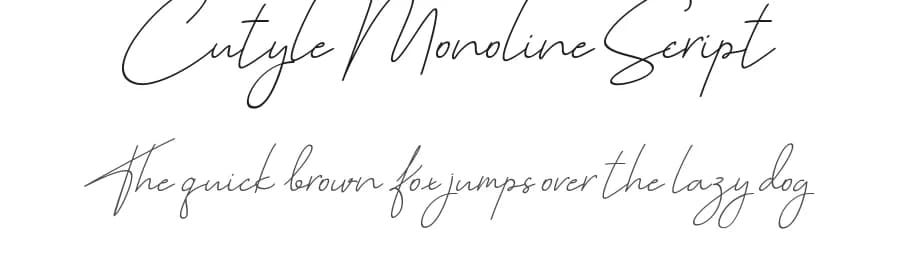 Cutyle Monoline Script
The quick brown fox jumps over the lazy dog